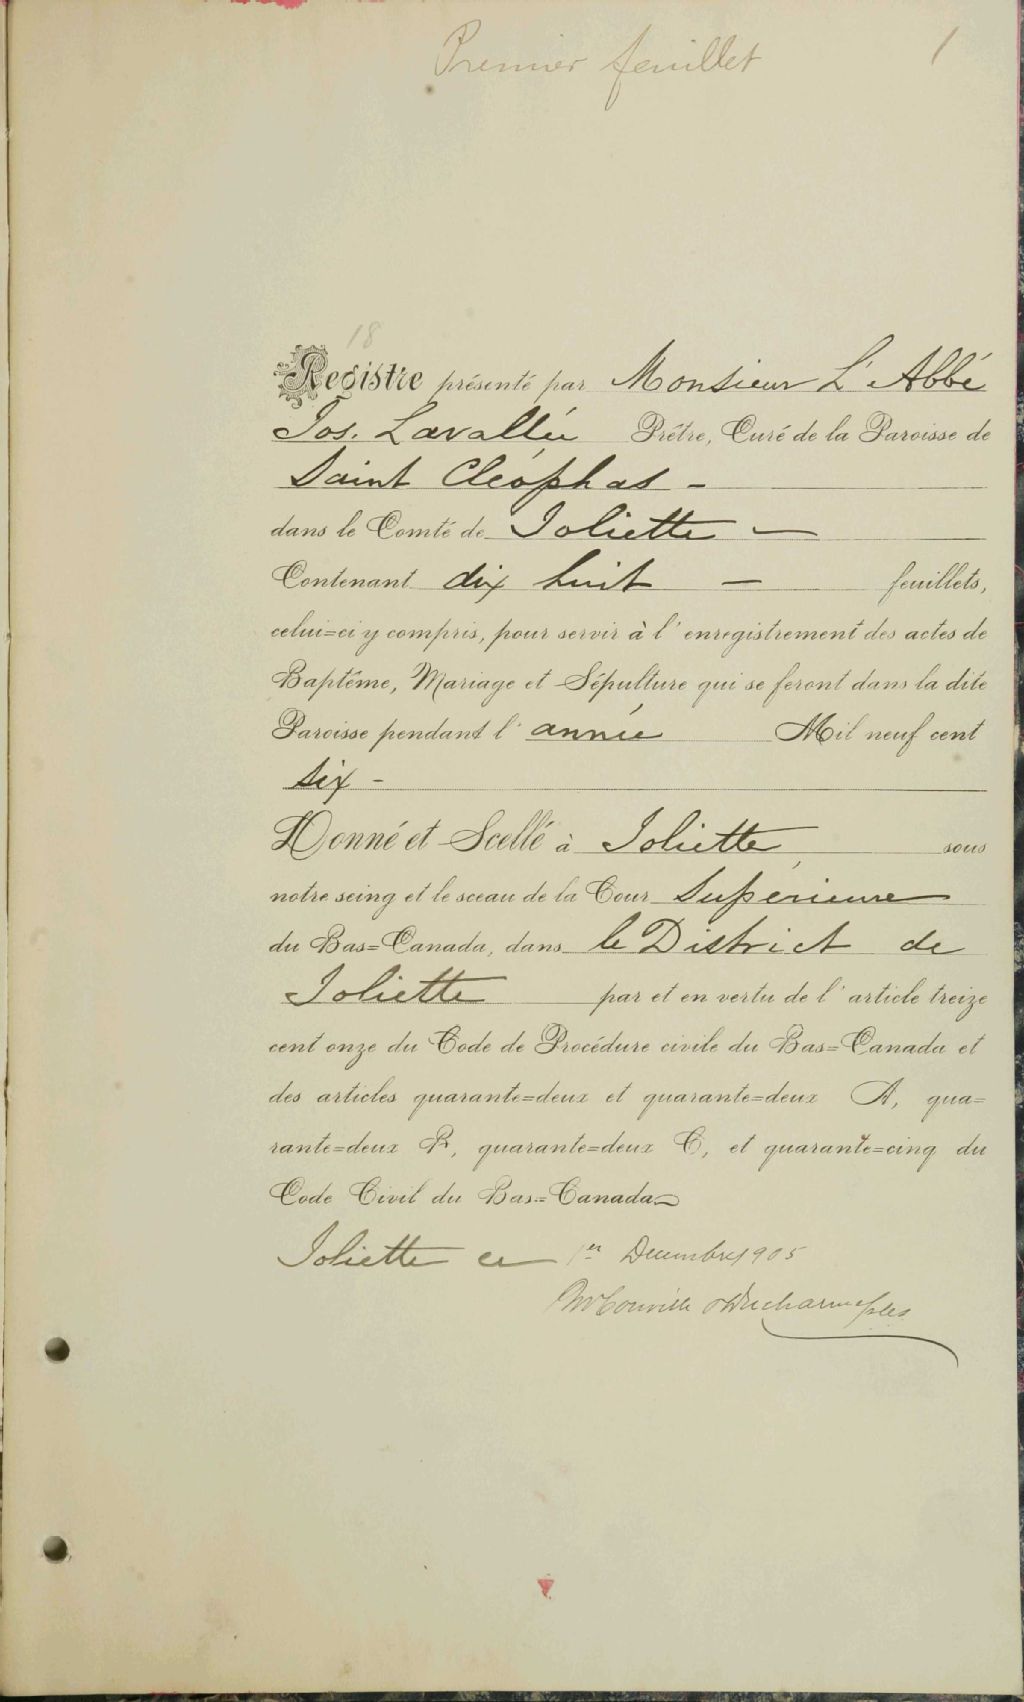 Premier feuillet 1
18
Registre présenté par Monsieur L'Abbé
Jos. Lavallée Prêtre, Curé de la Paroisse de
Saint Cléophas -
dans le Comté de Joliette -
Contenant dix huit - feuillets,
celui=ci y compris, pour servir à l'enregistrement des actes de
Baptême, Mariage et Sépulture qui se feront dans la dite
Paroisse pendant l'année Mil neuf cent
six -
Donné et Scellé à Joliette, sous
notre seing et le sceau de la Cour Supérieure
du Bas=Canada, dans le District de
Joliette par et en vertu de l'article treize
cent onze du Code de Procédure civile du Bas=Canada et
des articles quarante=deux et quarante=deux A, qua=
rante=deux B, quarante=deux C, et quarante=cinq du
Code Civil du Bas=Canada
Joliette ce 1er Decembre 1905
Ducharme